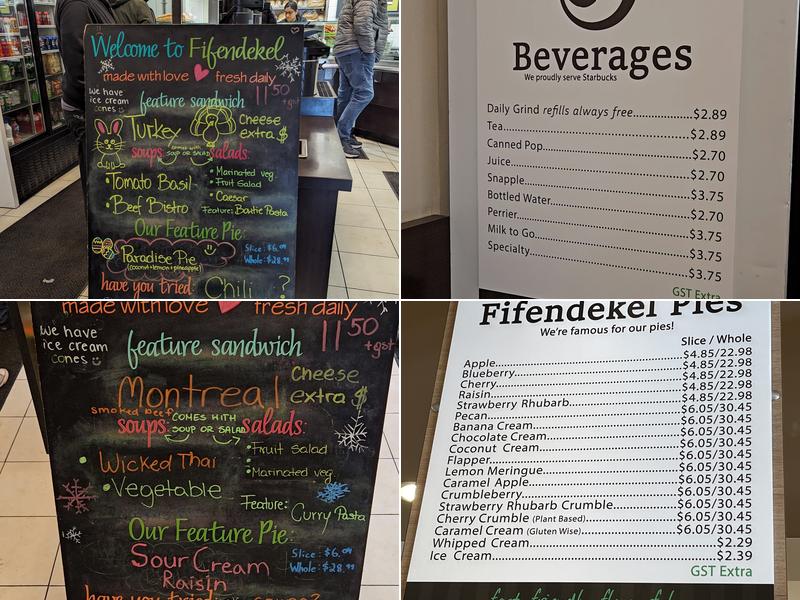 Welcome to Fifendekel
made with love fresh daily
we have
ice cream
cones
feature sandwich
11.50
+gst
Turkey
Cheese
extra $
comes with
soup or salad
soups: salads:
• Tomato Basil
• Beef Bistro
• Marinated veg.
• Fruit Salad
• Caesar
Feature: Bowtie Pasta
Our Feature Pie:
Paradise Pie
(coconut+lemon+pineapple)
Slice: $6.09
Whole: $28.99
have you tried: Chili ?
Beverages
We proudly serve Starbucks
Daily Grind refills always free...............$2.89
Tea...............$2.89
Canned Pop...............$2.70
Juice...............$2.70
Snapple...............$3.75
Bottled Water...............$2.70
Perrier...............$3.75
Milk to Go...............$3.75
Specialty...............$3.75
GST Extra
made with love fresh daily
we have
ice cream
cones
feature sandwich
11.50
+gst
Montreal
smoked beef
Cheese
extra $
COMES WITH
SOUP OR SALAD
soups: salads:
• Wicked Thai
• Vegetable
• Fruit Salad
• Marinated veg.
Feature:
Curry Pasta
Our Feature Pie:
Sour Cream
Raisin
Slice: $6.09
Whole: $28.99
have you tried
Fifendekel Pies
We're famous for our pies!
Slice / Whole
Apple...............$4.85/22.98
Blueberry...............$4.85/22.98
Cherry...............$4.85/22.98
Raisin...............$4.85/22.98
Strawberry Rhubarb...............$4.85/22.98
Pecan...............$6.05/30.45
Banana Cream...............$6.05/30.45
Chocolate Cream...............$6.05/30.45
Coconut Cream...............$6.05/30.45
Flapper...............$6.05/30.45
Lemon Meringue...............$6.05/30.45
Caramel Apple...............$6.05/30.45
Crumbleberry...............$6.05/30.45
Strawberry Rhubarb Crumble...............$6.05/30.45
Cherry Crumble (Plant Based)...............$6.05/30.45
Caramel Cream (Gluten Wise)...............$6.05/30.45
Whipped Cream...............$2.29
Ice Cream...............$2.39
GST Extra